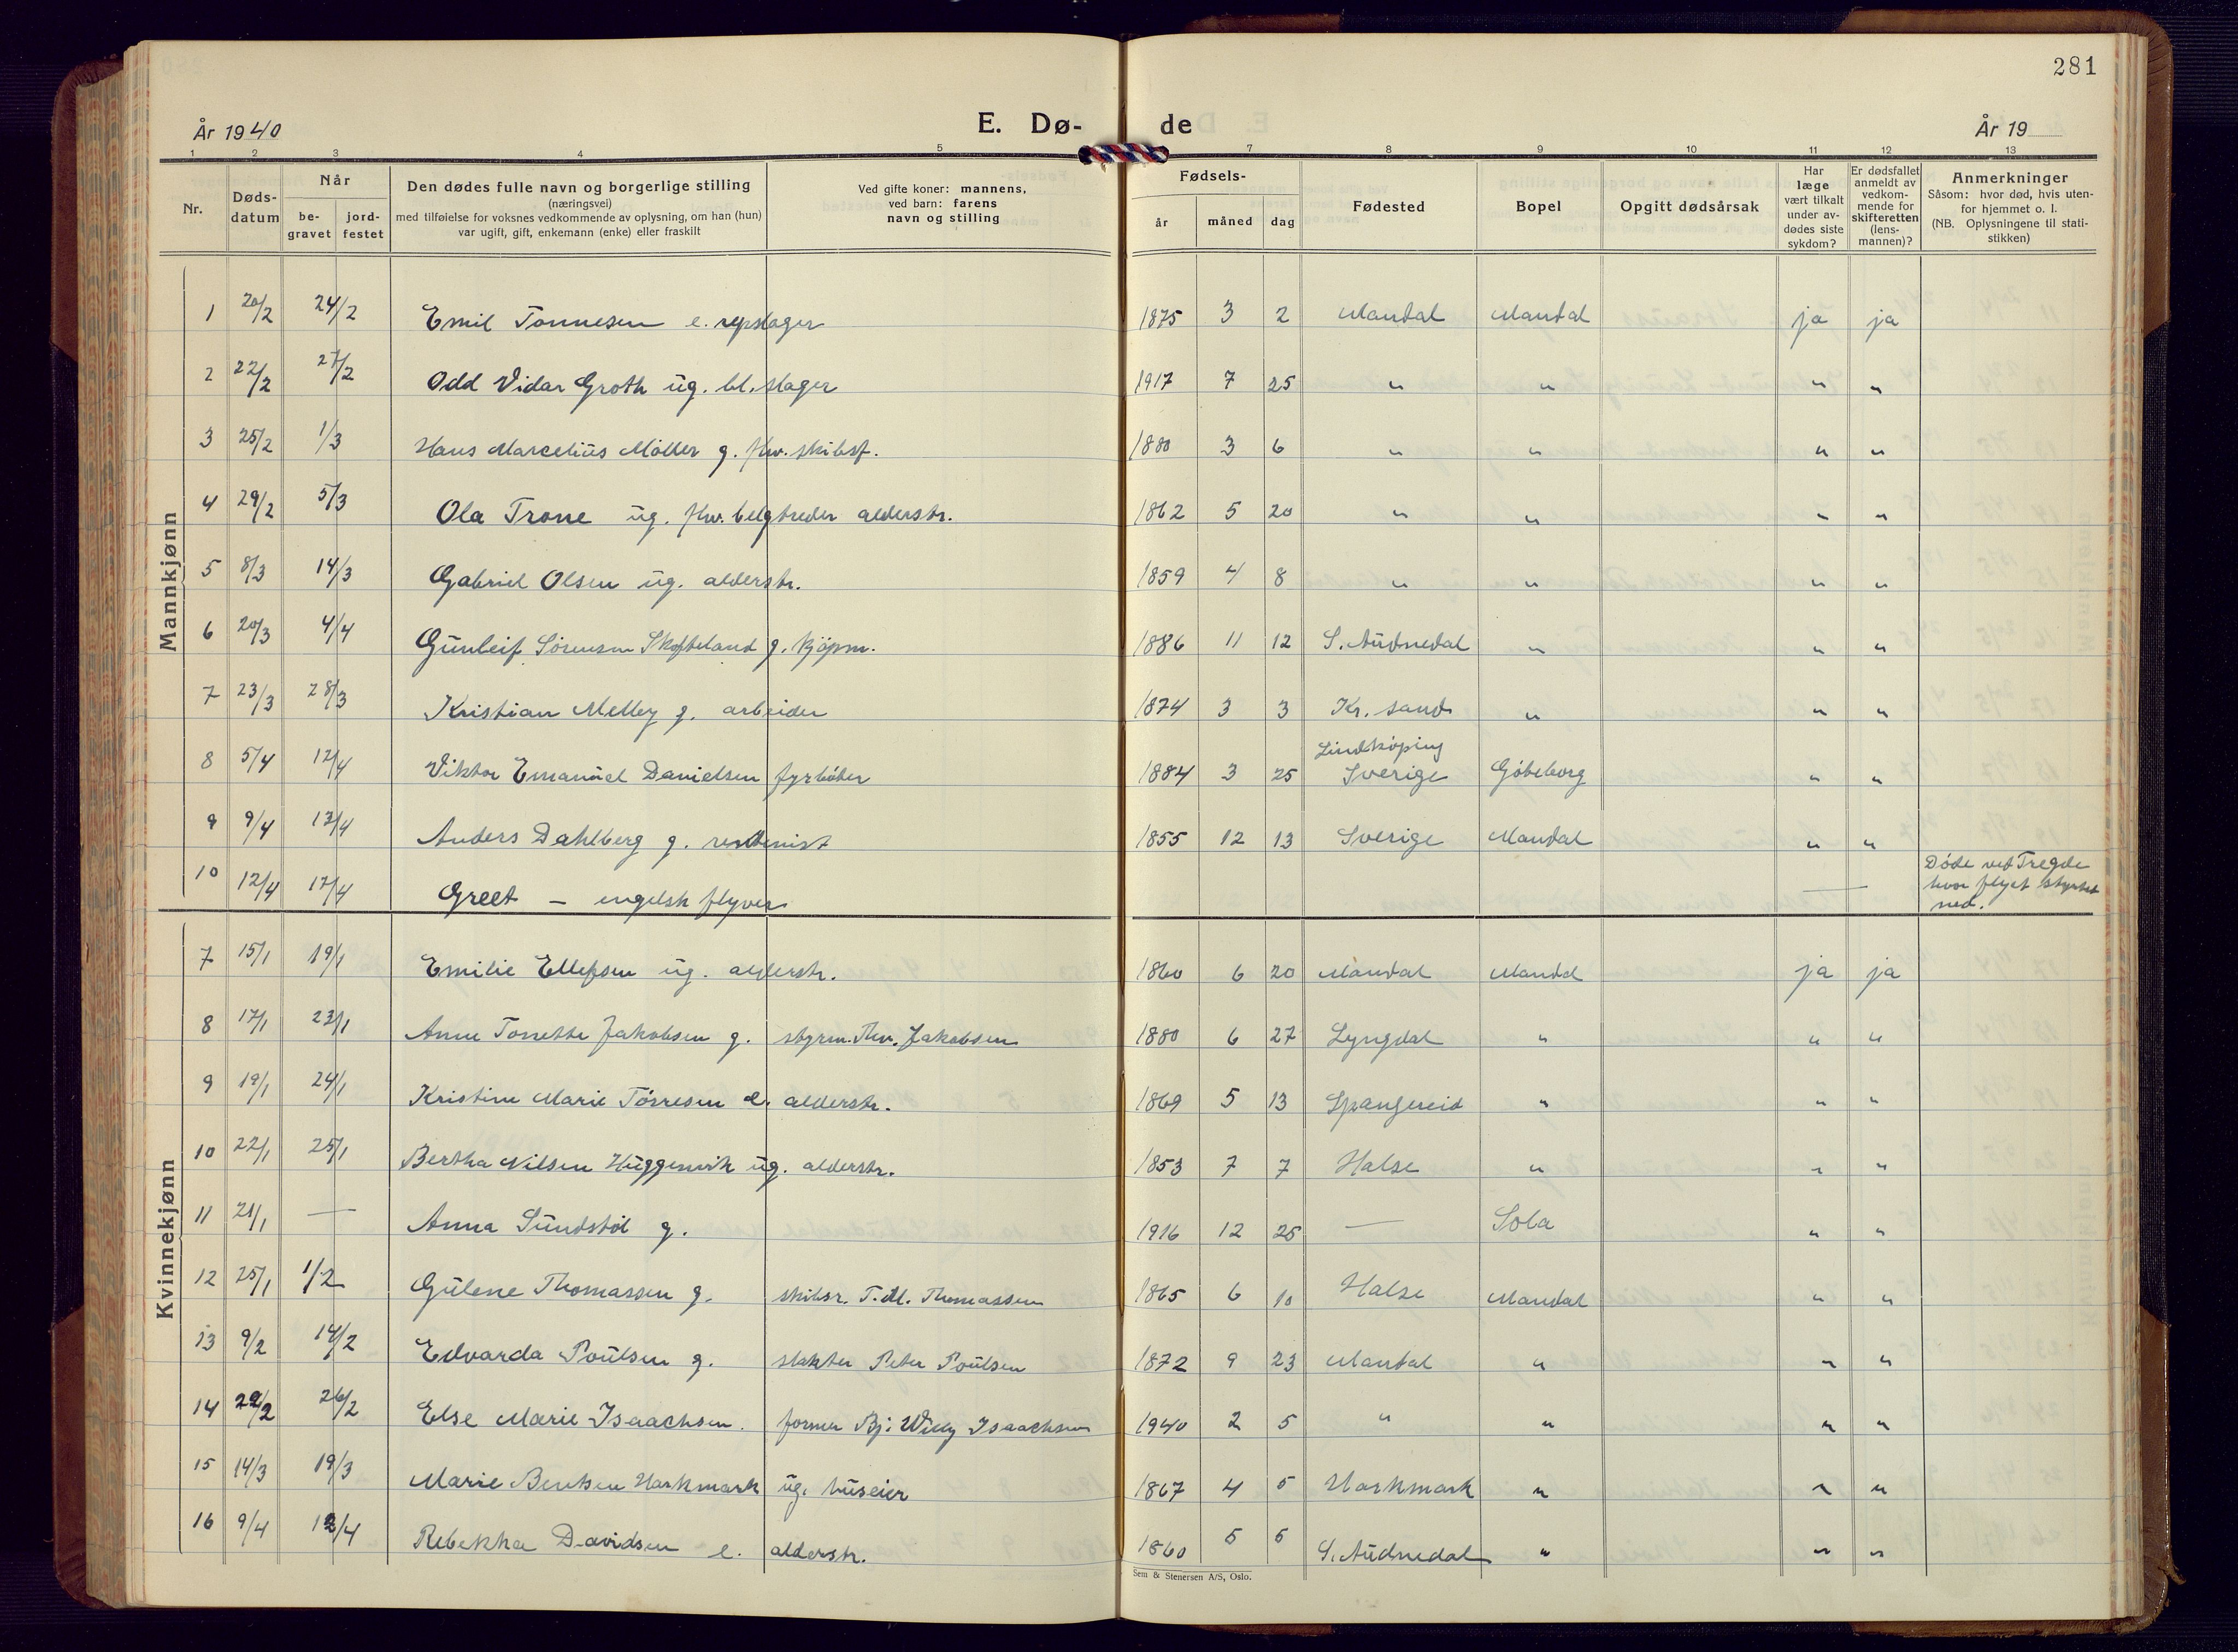 281
År 1940 E. Dø- de År 19
1 2 3 4 5 7 8 9 10 11 12 13
Nr. Døds-datum Når be-gravet jord-festet Den dødes fulle navn og borgerlige stilling (næringsvei) med tilføielse for voksnes vedkommende av oplysning, om han (hun) var ugift, gift, enkemann (enke) eller fraskilt Ved gifte koner: mannens, ved barn: farens navn og stilling Fødsels- år måned dag Fødested Bopel Opgitt dødsårsak Har læge vært tilkalt under av-dødes siste sykdom? Er dødsfallet anmeldt av vedkom-mende for skifteretten (lens-mannen)? Anmerkninger Såsom: hvor død, hvis uten-for hjemmet o. l. (NB. Oplysningene til stati-stikken)
Mannkjønn
1 20/2 24/2 Emil Tønnesen e. repslager 1875 3 2 Mandal Mandal ja ja
2 22/2 27/2 Odd Vidar Groth ug. bl.slager 1917 7 25 " " " "
3 25/2 1/3 Hans Marcelius Møller g. fhv. skibsf. 1880 3 6 " " " "
4 29/2 5/3 Ola Trone ug. fhv. belgtreder alderstr. 1862 5 20 " " " "
5 8/3 14/3 Gabriel Olsen ug. alderstr. 1859 4 8 " " " "
6 20/3 4/4 Gunleif Sørensen Skofteland g. kjøpm. 1886 11 12 S. Audnedal " " "
7 23/3 28/3 Kristian Melby g. arbeider 1874 3 3 Kr. sand " " "
8 5/4 12/4 Viktor Emanuel Danielsen fyrbøter 1884 3 25 Lindköping Sverige Göteborg " "
9 9/4 13/4 Anders Dahlberg g. rentenist 1855 12 13 Sverige Mandal " "
10 12/4 17/4 Greet – engelsk flyver — Døde ved Tregde hvor flyet styrtet ned.
Kvinnekjønn
7 15/1 19/1 Emilie Ellefsen ug. alderstr. 1860 6 20 Mandal Mandal ja ja
8 17/1 23/1 Anne Tonette Jakobsen g. styrm. Thv. Jakobsen 1880 6 27 Lyngdal " " "
9 19/1 24/1 Kristine Marie Tørresen e. alderstr. 1869 5 13 Spangereid " " "
10 22/1 25/1 Bertha Nilsen Huggenvik ug. alderstr. 1853 7 7 Halse " " "
11 21/1 — Anna Sundstøl g. 1916 12 25 — Sola " "
12 25/1 1/2 Gulene Thomassen g. skibsr. T. M. Thomassen 1865 6 10 Halse Mandal " "
13 9/2 14/2 Edvarda Poulsen g. slakter Peter Poulsen 1872 9 23 Mandal " " "
14 22/2 26/2 Else Marie Isaachsen. former Bj. Willy Isaachsen 1940 2 5 " " " "
15 14/3 19/3 Marie Bentsen Harkmark ug. huseier 1867 4 5 Harkmark " " "
16 9/4 12/4 Rebekka Davidsen e. alderstr. 1860 5 5 S. Audnedal " " "
Sem & Stenersen A/S, Oslo.